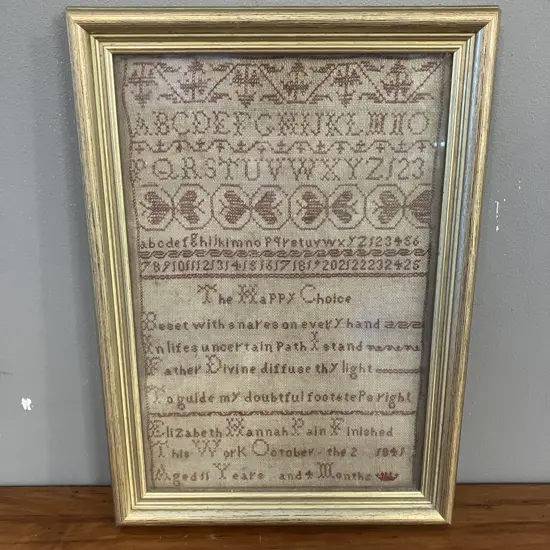 ABCDEFGHIJKLMNO
PQRSTUVWXYZ123
abcdefghijklmnopqrstuvwxyz123456
7891011121314151617181920212223242526
The Happy Choice
Beset with snares on every hand
In lifes uncertain Path I stand
Father Divine diffuse thy light
To guide my doubtful footsteps right
Elizabeth Hannah Pain Finished
This Work October the 2 1841
Aged 11 Years and 4 Months